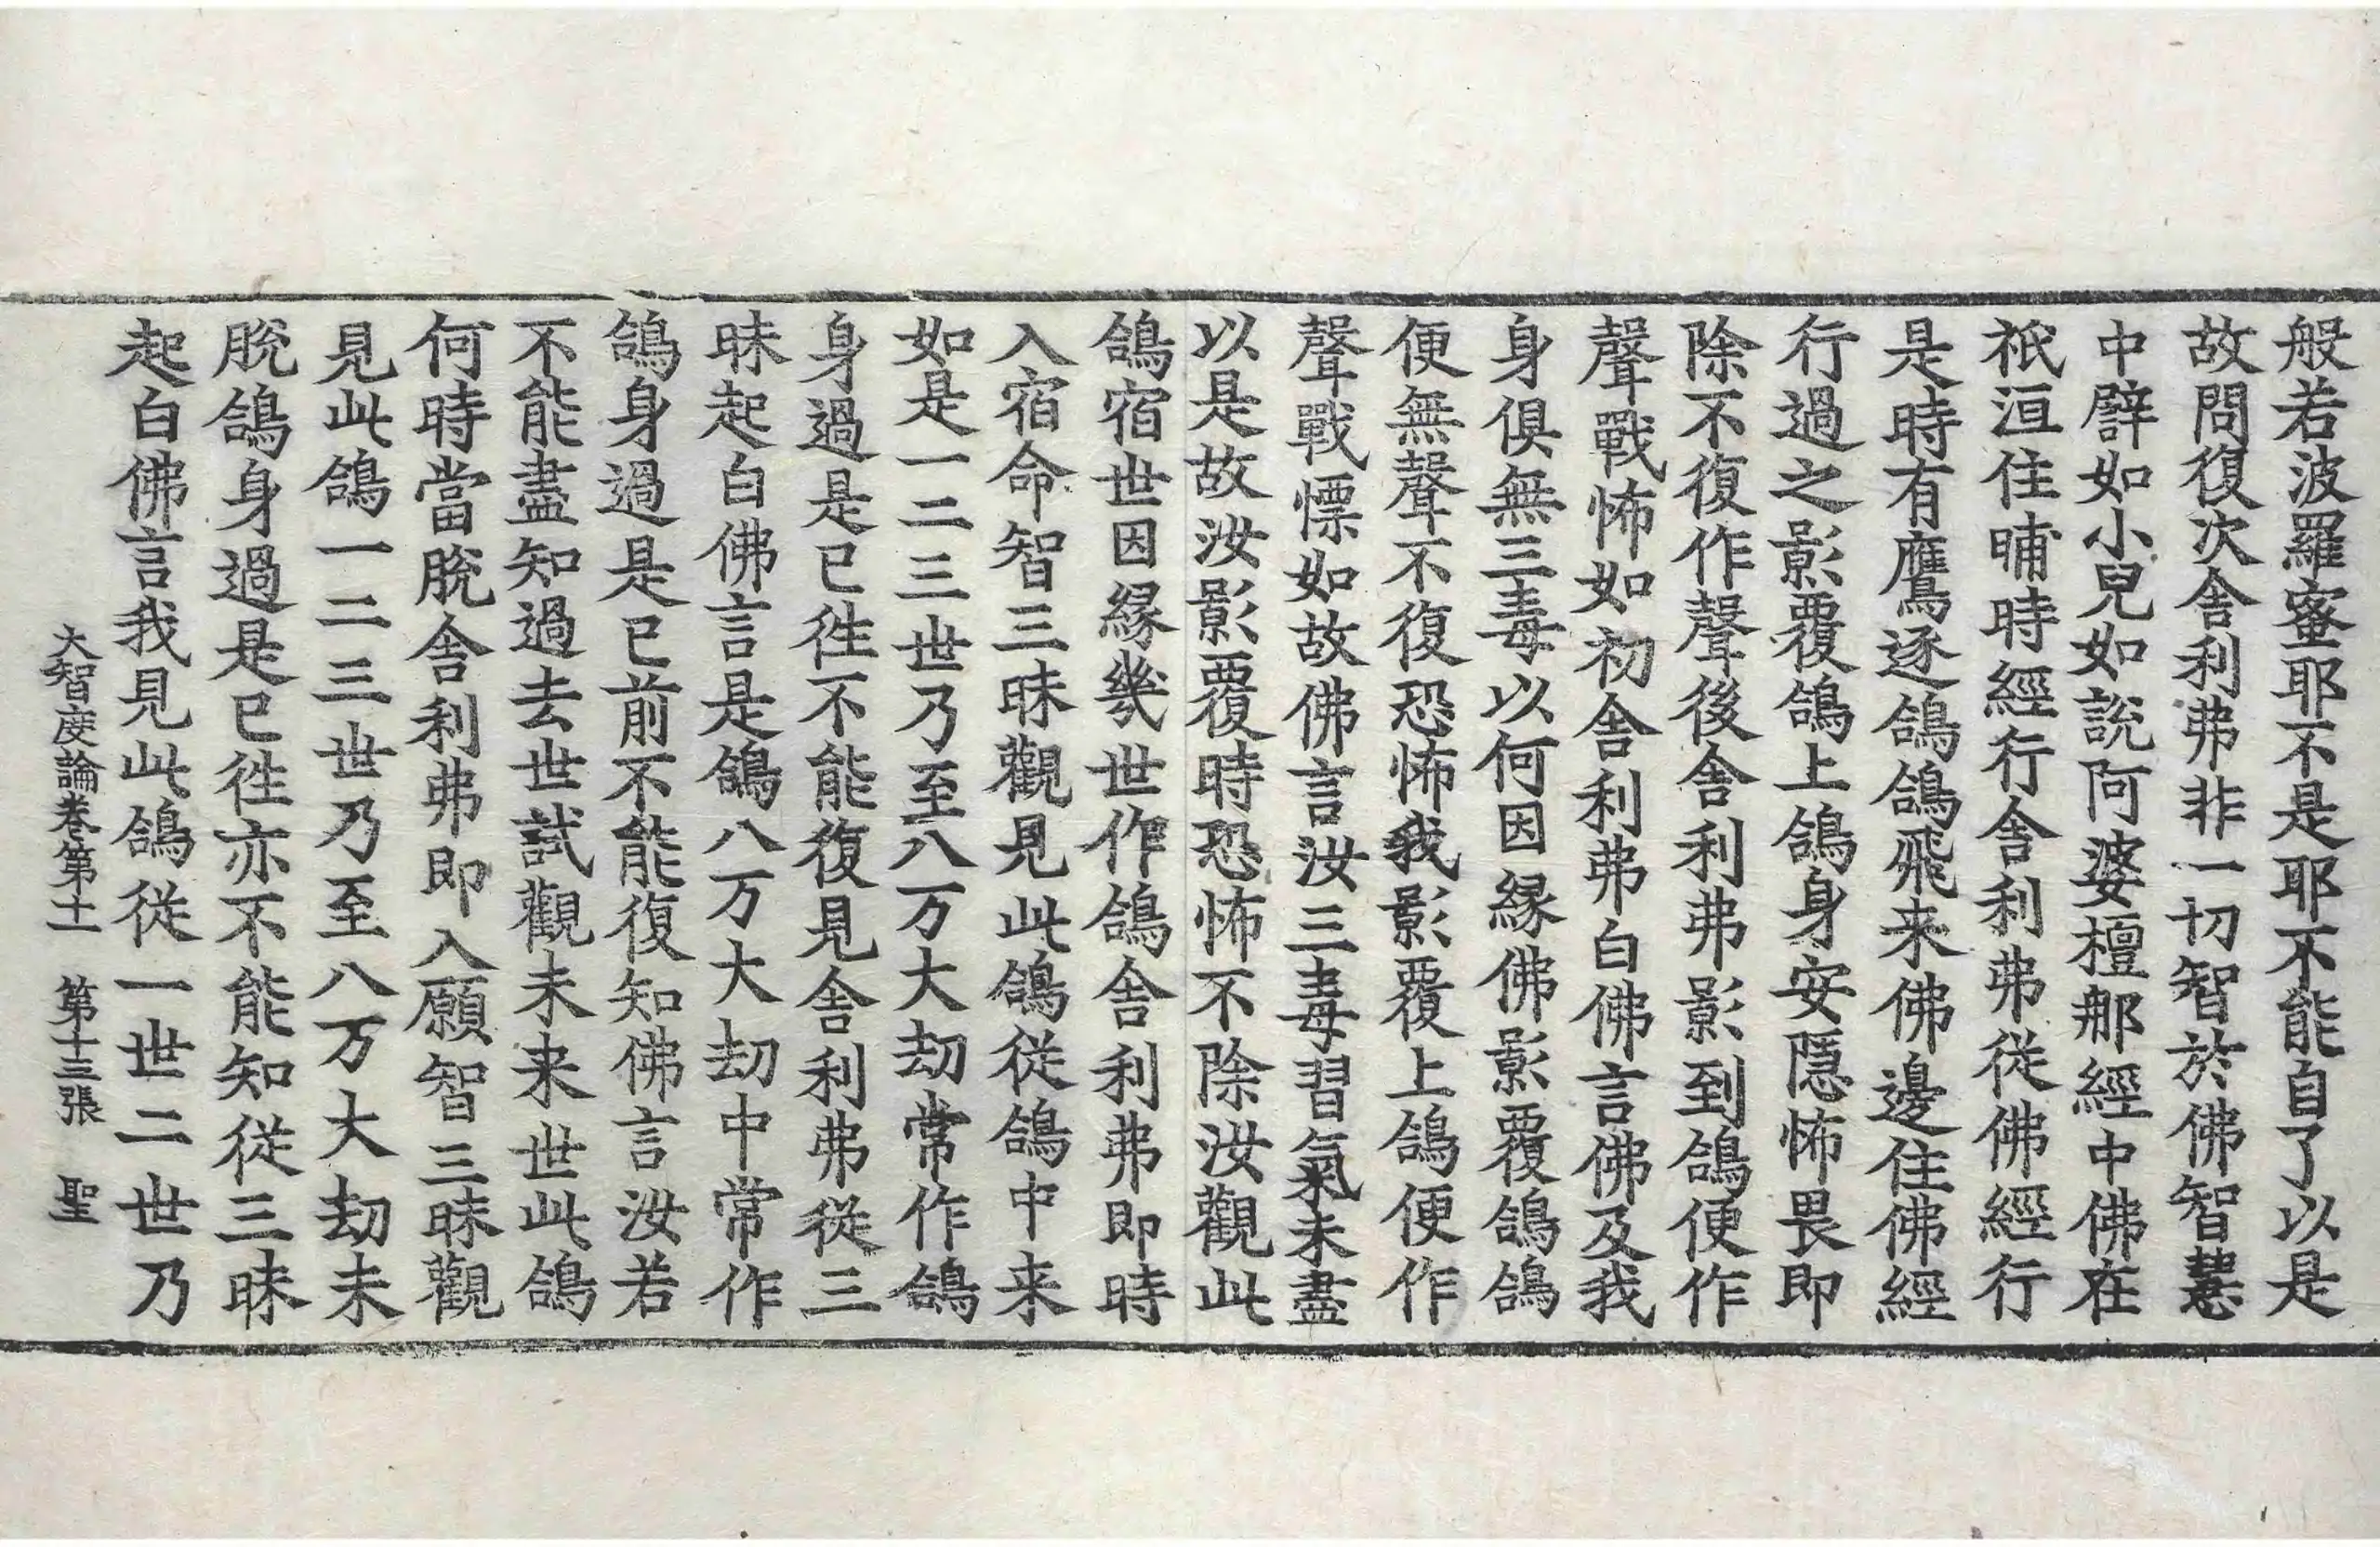 般若波羅蜜耶不是耶不能自了以是
故問復次舎利弗非一切智於佛智慧
中譬如小兒如說阿婆檀那經中佛在
祇洹住晡時經行舎利弗從佛經行
是時有鷹逐鴿鴿飛来佛邊住佛經
行過之影覆鴿上鴿身安隱怖畏即
除不復作聲後舎利弗影到鴿便作
聲戰怖如初舎利弗白佛言佛及我
身俱無三毒以何因緣佛影覆鴿鴿
便無聲不復恐怖我影覆上鴿便作
聲戰慄如故佛言汝三毒習氣未盡
以是故汝影覆時恐怖不除汝觀此
鴿宿世因緣幾世作鴿舎利弗即時
入宿命智三昧觀見此鴿從鴿中来
如是一二三世乃至八万大劫常作鴿
身過是已徃不能復見舎利弗從三
昧起白佛言是鴿八万大劫中常作
鴿身過是已前不能復知佛言汝若
不能盡知過去世試觀未来世此鴿
何時當脫舎利弗即入願智三昧觀
見此鴿一二三世乃至八万大劫未
脫鴿身過是已徃亦不能知從三昧
起白佛言我見此鴿從一世二世乃
大智度論卷第十一 第十三張 聖